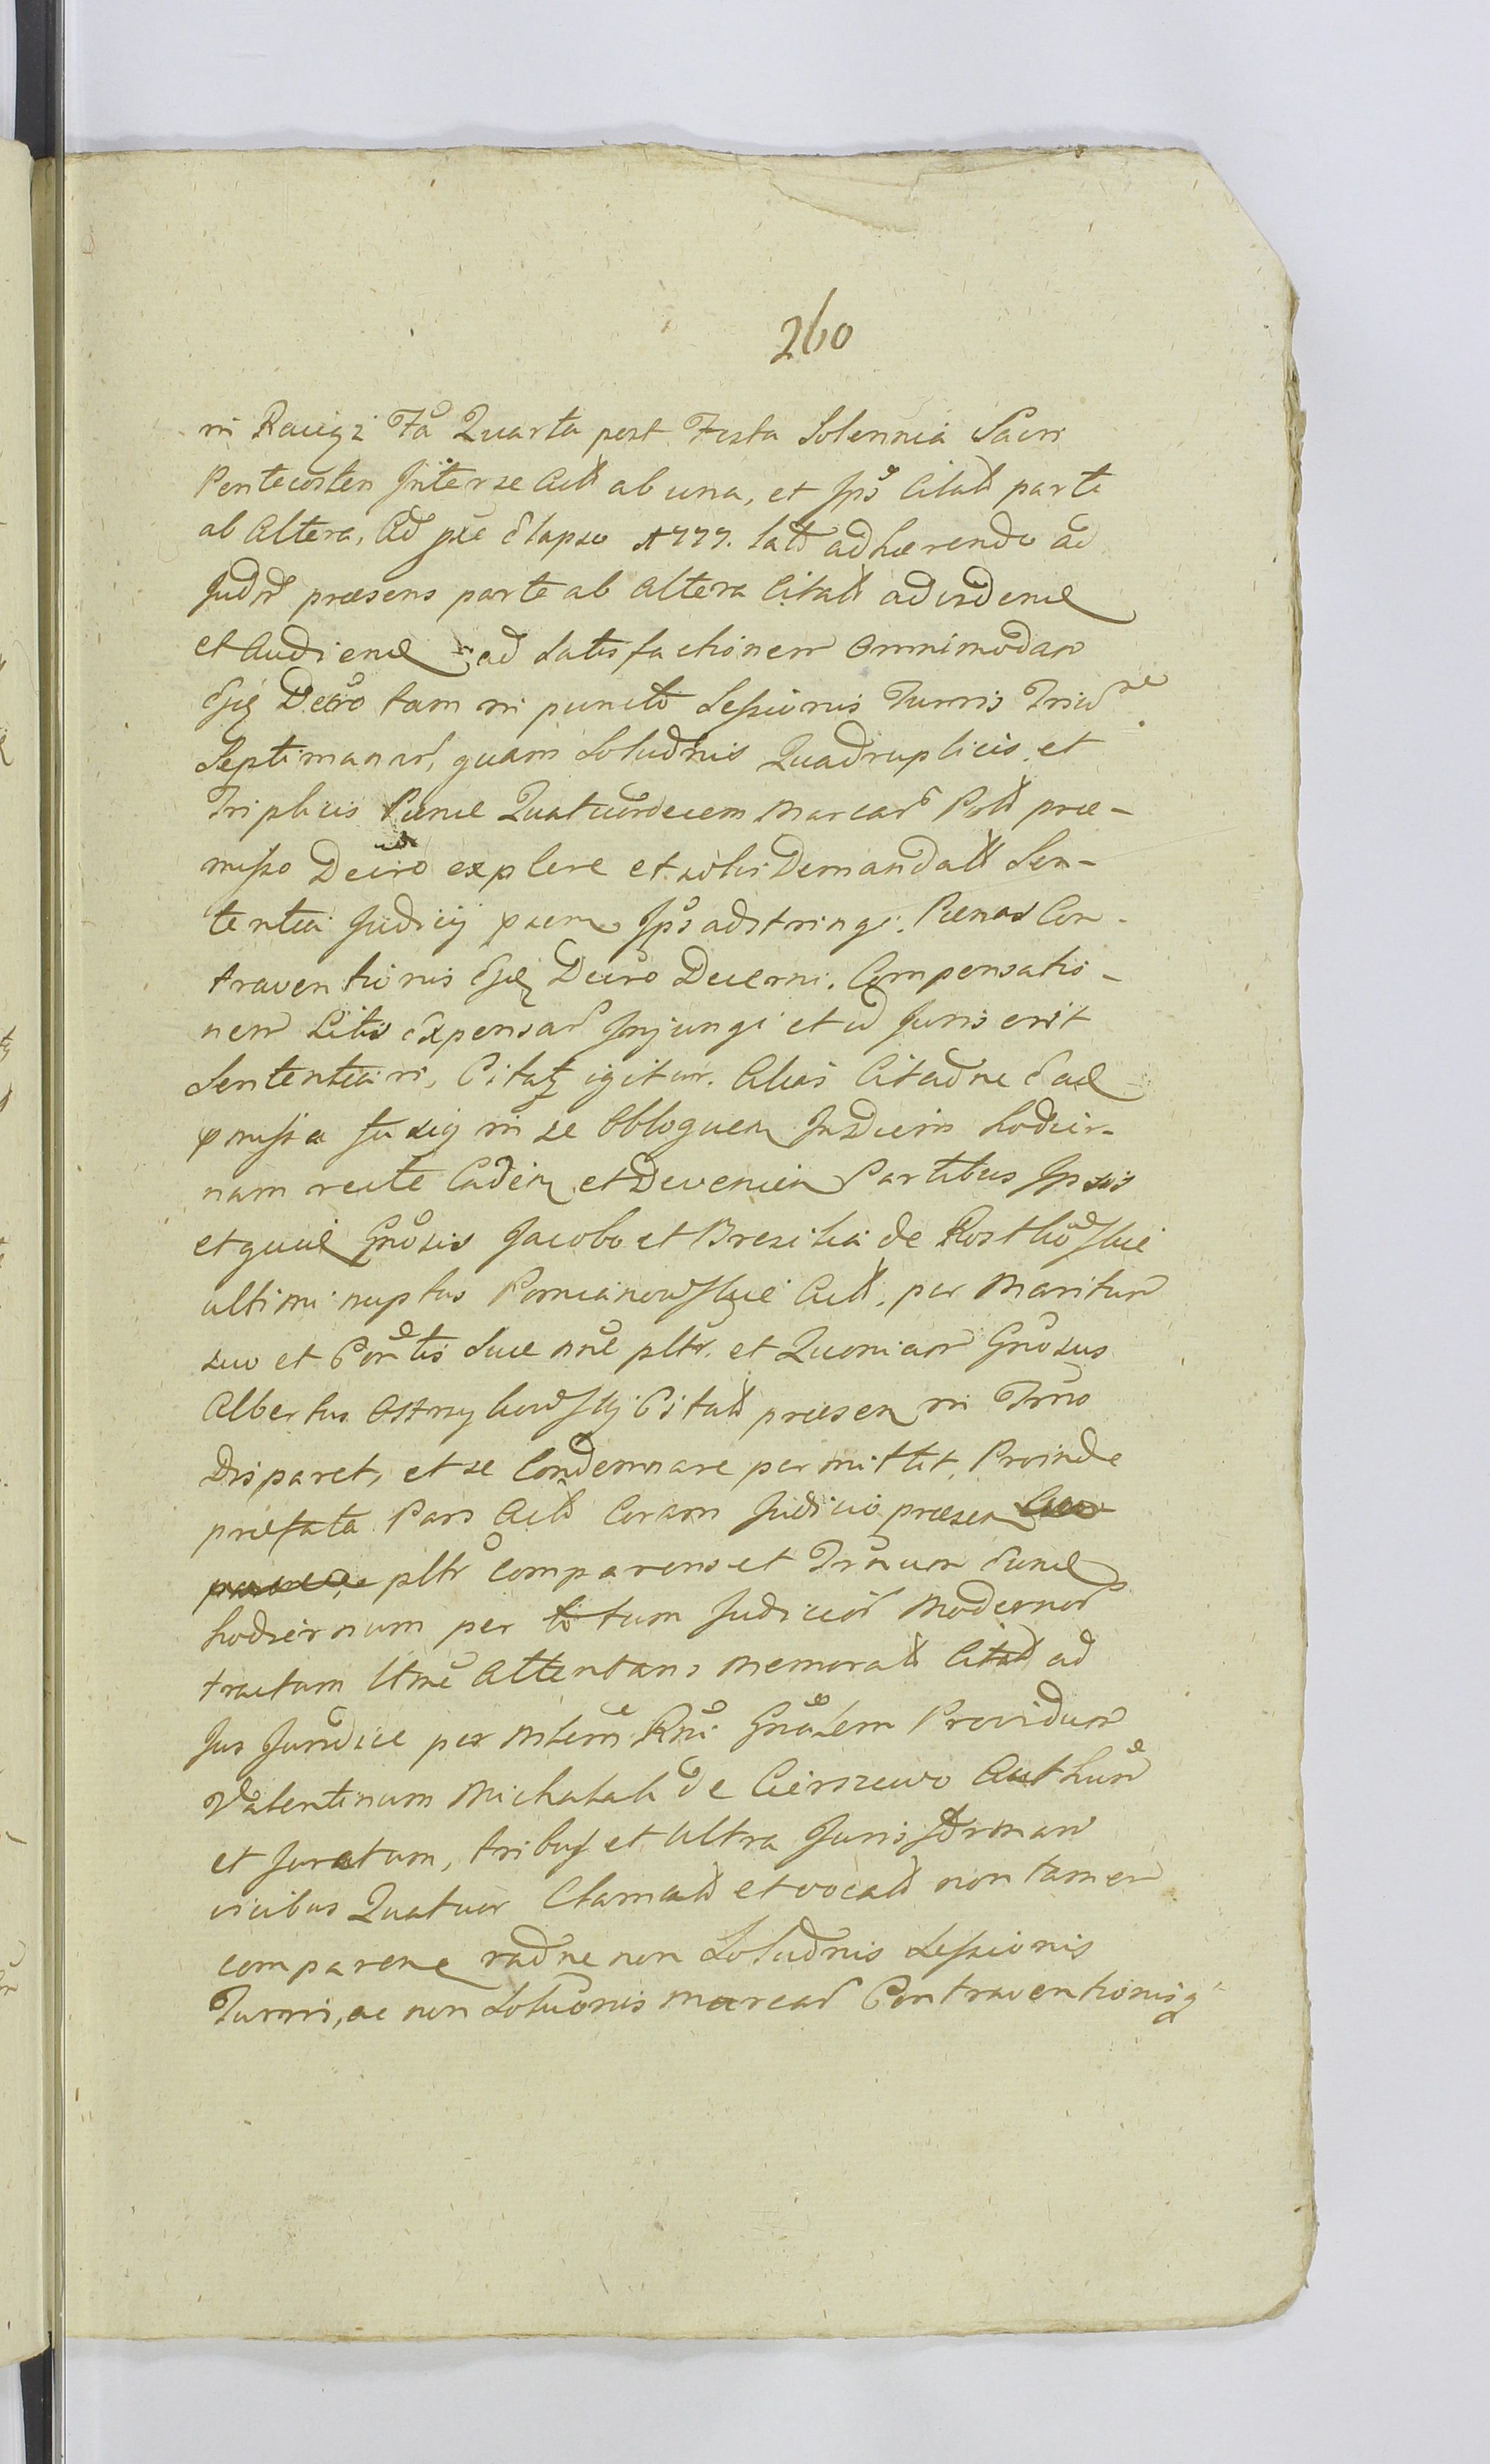 260
in Raciąz Fã Quarta post Festa Solennia Sacri
Pentecosten Inter se Actt ab una, et Ipõ Citatt parte
ab Altera, Ad pœ Elapso 1777. latt adhœrendo ad
Judm prœsens parte ab Altera Citatt ad videne
et Audiene ad Satisfactionem Omnimodam
Ejq Decro tam in puncto Sessionis Turris Triũ
Septimanar, quam Soludnis Quadruplicis et
Triplicis Pœnœ Quatuordecem Marcar Polt prœ-
misso Decro explere et solvi Demandatt Sen-
tentia Judicij psem Ipõ adstringi. Pœnas Con-
traventionis Ejq Decro Decerni. Compensatio-
nem Litis Expensar Injungi et id Juris erit
Sententiari, Citatq igitur. Alias Citadne Ead
pmissa fusiq in se Obloquen In Diem hodier-
nam recte Caden et Devenien Partibus Ipsis
et quid Gnosis Jacobo et Brezitia de
ultimi nuptus Pomianowskie Actt. per Maritum
suo et Contis Suœ nœ pltr. et Quoniam Gnosus
Albertus Citatt prœsen in Trno
Disparet, et se Condemnare permittit, Proinde
prœfata Pars Actt Coram Judicio prœsen
pltr comparens et Trnum Eund
hodiernum per totum Judicior Modernor
tractum Ltmẽ Attentans memoratt Citatt ad
Jus Juridice per Mlem Rni Gnalem Providum
Valentinum Michalak de Cierszewo Authũn
et Juratum, tribus et Ultra Juris formam
vicibus Quatuor Clamatt et vocatt non tamen
comparene radne non Soludnis Sessionis
Turris, ac non Solucnis marcar Contraventionisq